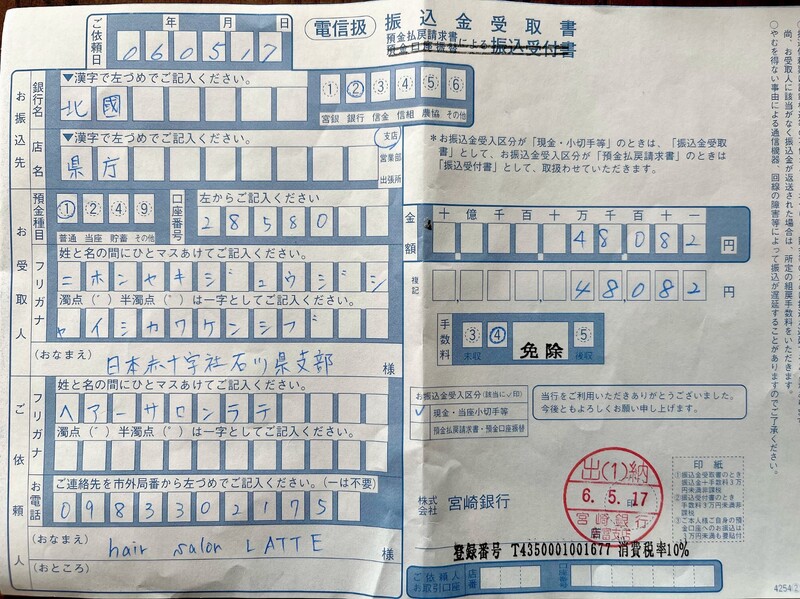 ご依頼日
年 月 日
060517
電信扱 振込金受取書
預金払戻請求書
による振込受付書
お振込先
銀行名
▼漢字で左づめでご記入ください。
北國
① ② ③ ④ ⑤ ⑥
宮銀 銀行 信金 信組 農協 その他
店名
▼漢字で左づめでご記入ください。
県庁
支店
営業部
出張所
預金種目
① ② ④ ⑨
普通 当座 貯蓄 その他
口座番号
左からご記入ください
28580
お受取人
フリガナ
姓と名の間にひとマスあけてご記入ください。
ニホンセキジュウジシ
濁点(゛)半濁点(゜)は一字としてご記入ください。
ャイシカワケンシブ
(おなまえ)
日本赤十字社石川県支部 様
ご依頼人
フリガナ
姓と名の間にひとマスあけてご記入ください。
ヘアーサロンラテ
濁点(゛)半濁点(゜)は一字としてご記入ください。
お電話
ご連絡先を市外局番から左づめでご記入ください。(ーは不要)
0983302175
(おなまえ)
hair salon LATTE 様
(おところ)
*お振込金受入区分が「現金・小切手等」のときは、「振込金受取
書」として、お振込金受入区分が「預金払戻請求書」のときは
「振込受付書」として、取扱わせていただきます。
金額
十億千百十万千百十一
48082 円
複記
48082 円
手数料
③ ④ 免除 ⑤
未収 後収
お振込金受入区分(該当に✓印)
✓ 現金・当座小切手等
預金払戻請求書・預金口座振替
当行をご利用いただきありがとうございました。
今後ともよろしくお願い申し上げます。
株式会社 宮崎銀行
出(1)納
6.5.17
宮崎銀行
印紙
①振込金受取書のとき
振込金十手数料3万
円未満非課税
②振込受付書のとき
手数料3万円未満非
課税
③ご本人様ご自身の預
金口座へのお振込は
1万円未満も要貼付
登録番号 T4350001001677 消費税率10%
ご依頼人
お取引口座
店番
口座番号
4254
尚、お受取人に該当がなく振込金が返送された場合は、所定の組戻手数料をいただきます。
○やむを得ない事由による通信機器、回線の障害等によって振込が遅延することがありますのでご了承ください。